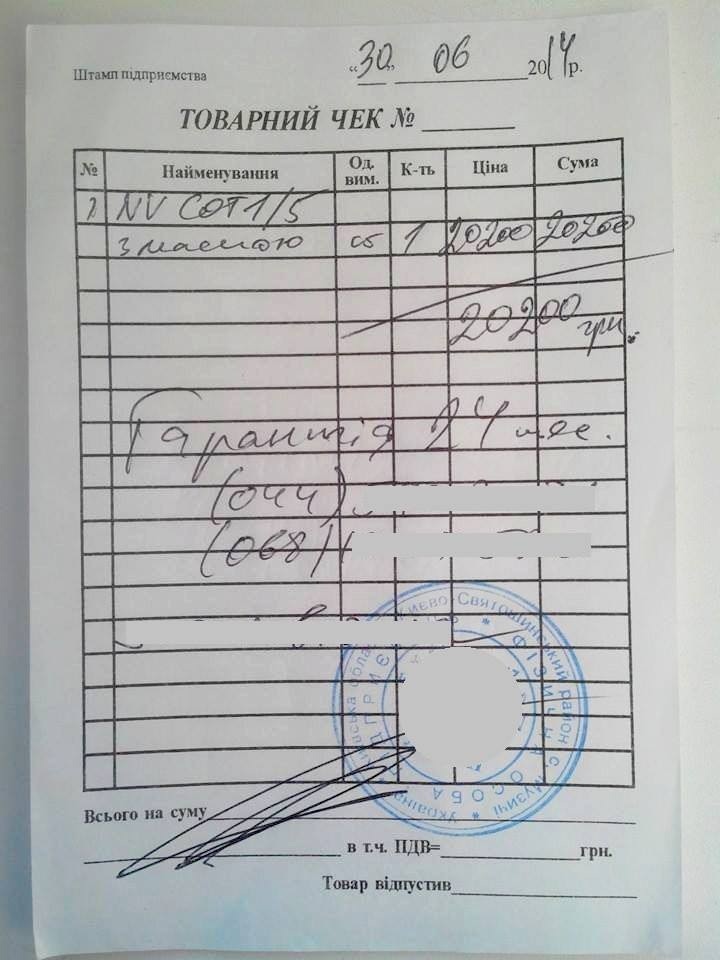 Штамп підприємства "30" 06 2014р.
ТОВАРНИЙ ЧЕК №
№ Найменування Од. вим. К-ть Ціна Сума
1 NV COT 1/5
з маскою 1 20200 20200
20200 грн.
Гарантія 24 мес.
(044)
(068)
Києво-Святошинський район с. Музичі * Україна
* ФІЗИЧНА ОСОБА
Всього на суму
в т.ч. ПДВ= грн.
Товар відпустив